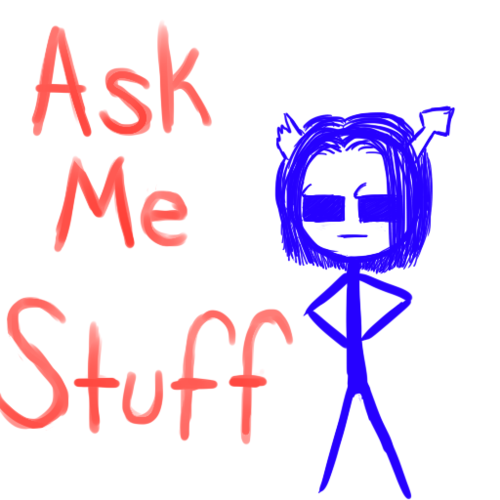 Ask
Me
Stuff